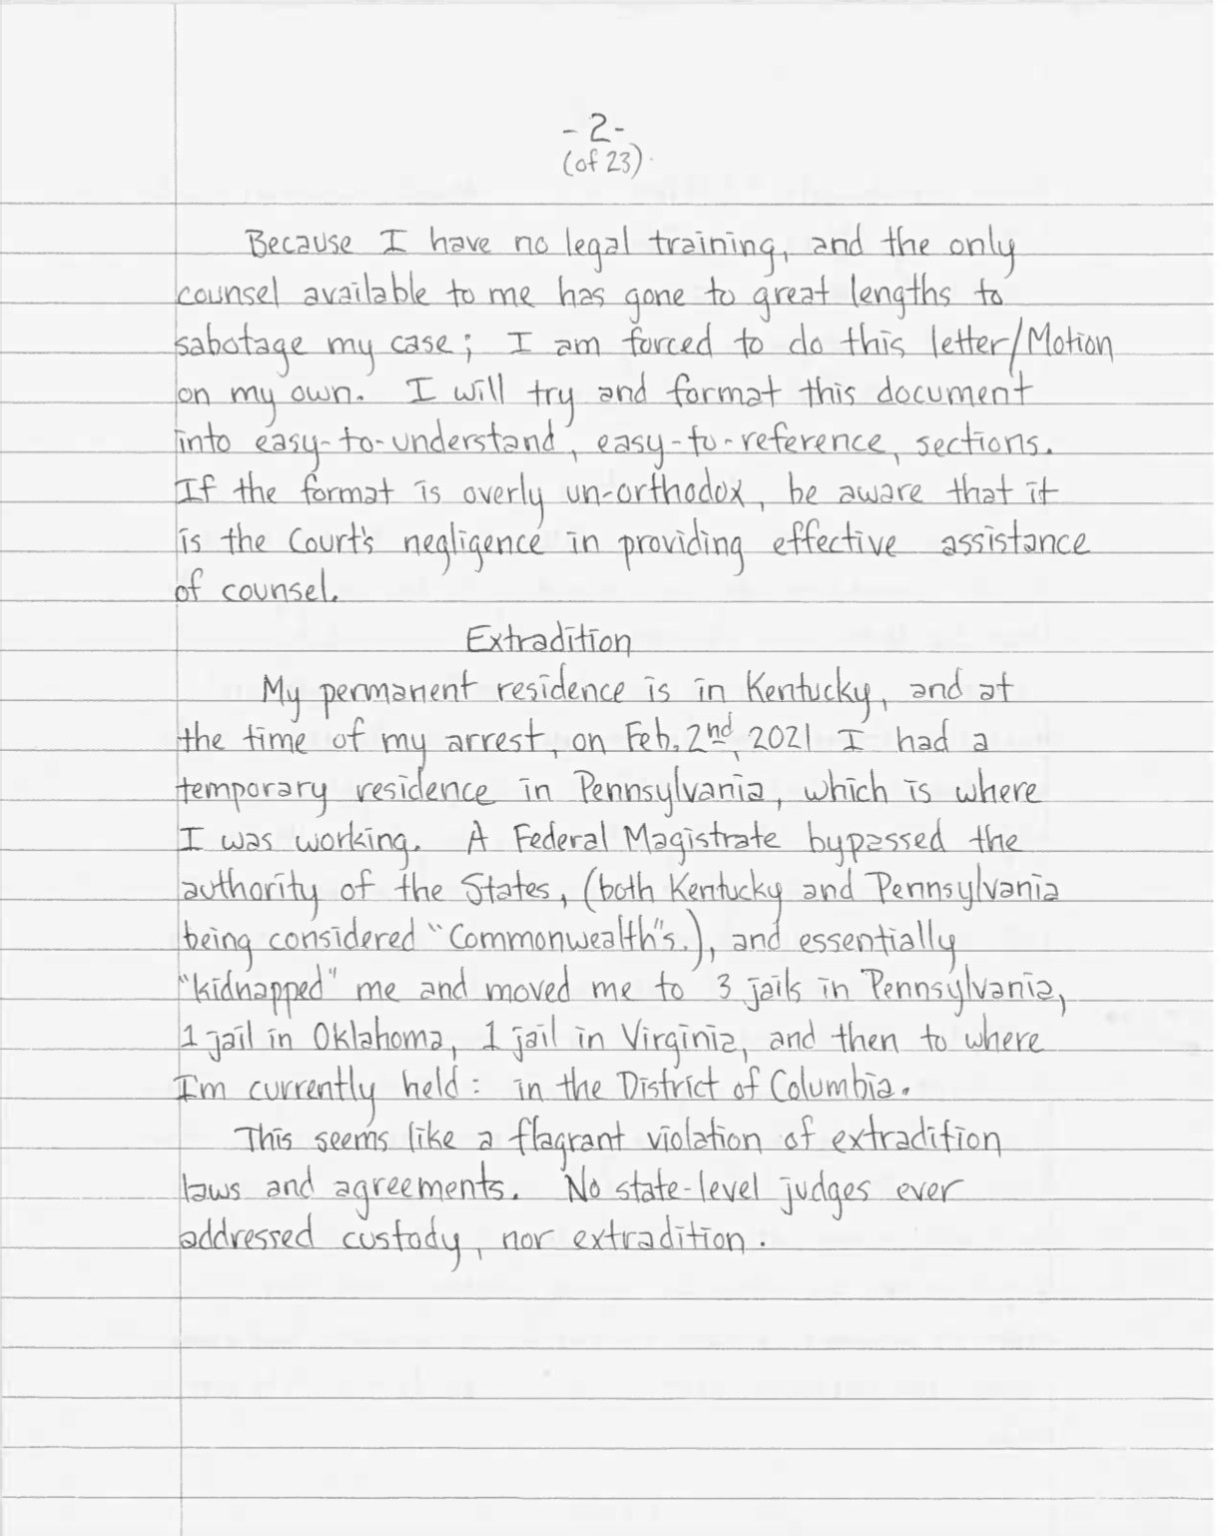 - 2 -
(of 23)
Because I have no legal training, and the only
counsel available to me has gone to great lengths to
sabotage my case; I am forced to do this letter/Motion
on my own. I will try and format this document
into easy-to-understand, easy-to-reference, sections.
If the format is overly un-orthodox, be aware that it
is the Court's negligence in providing effective assistance
of counsel.
Extradition
My permanent residence is in Kentucky, and at
the time of my arrest, on Feb. 2nd, 2021 I had a
temporary residence in Pennsylvania, which is where
I was working. A Federal Magistrate bypassed the
authority of the States, (both Kentucky and Pennsylvania
being considered "Commonwealth"s.), and essentially
"kidnapped" me and moved me to 3 jails in Pennsylvania,
1 jail in Oklahoma, 1 jail in Virginia, and then to where
I'm currently held: in the District of Columbia.
This seems like a flagrant violation of extradition
laws and agreements. No state-level judges ever
addressed custody, nor extradition.